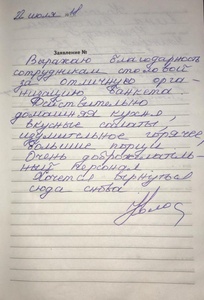 22 июля
Заявление №
Выражаю благодарность
сотрудникам столовой
за отличную орга-
низацию банкета.
Действительно
домашняя кухня,
вкусные салаты,
изумительное горячее,
большие порции
Очень доброжелатель-
ный персонал
Хочется вернуться
сюда снова!